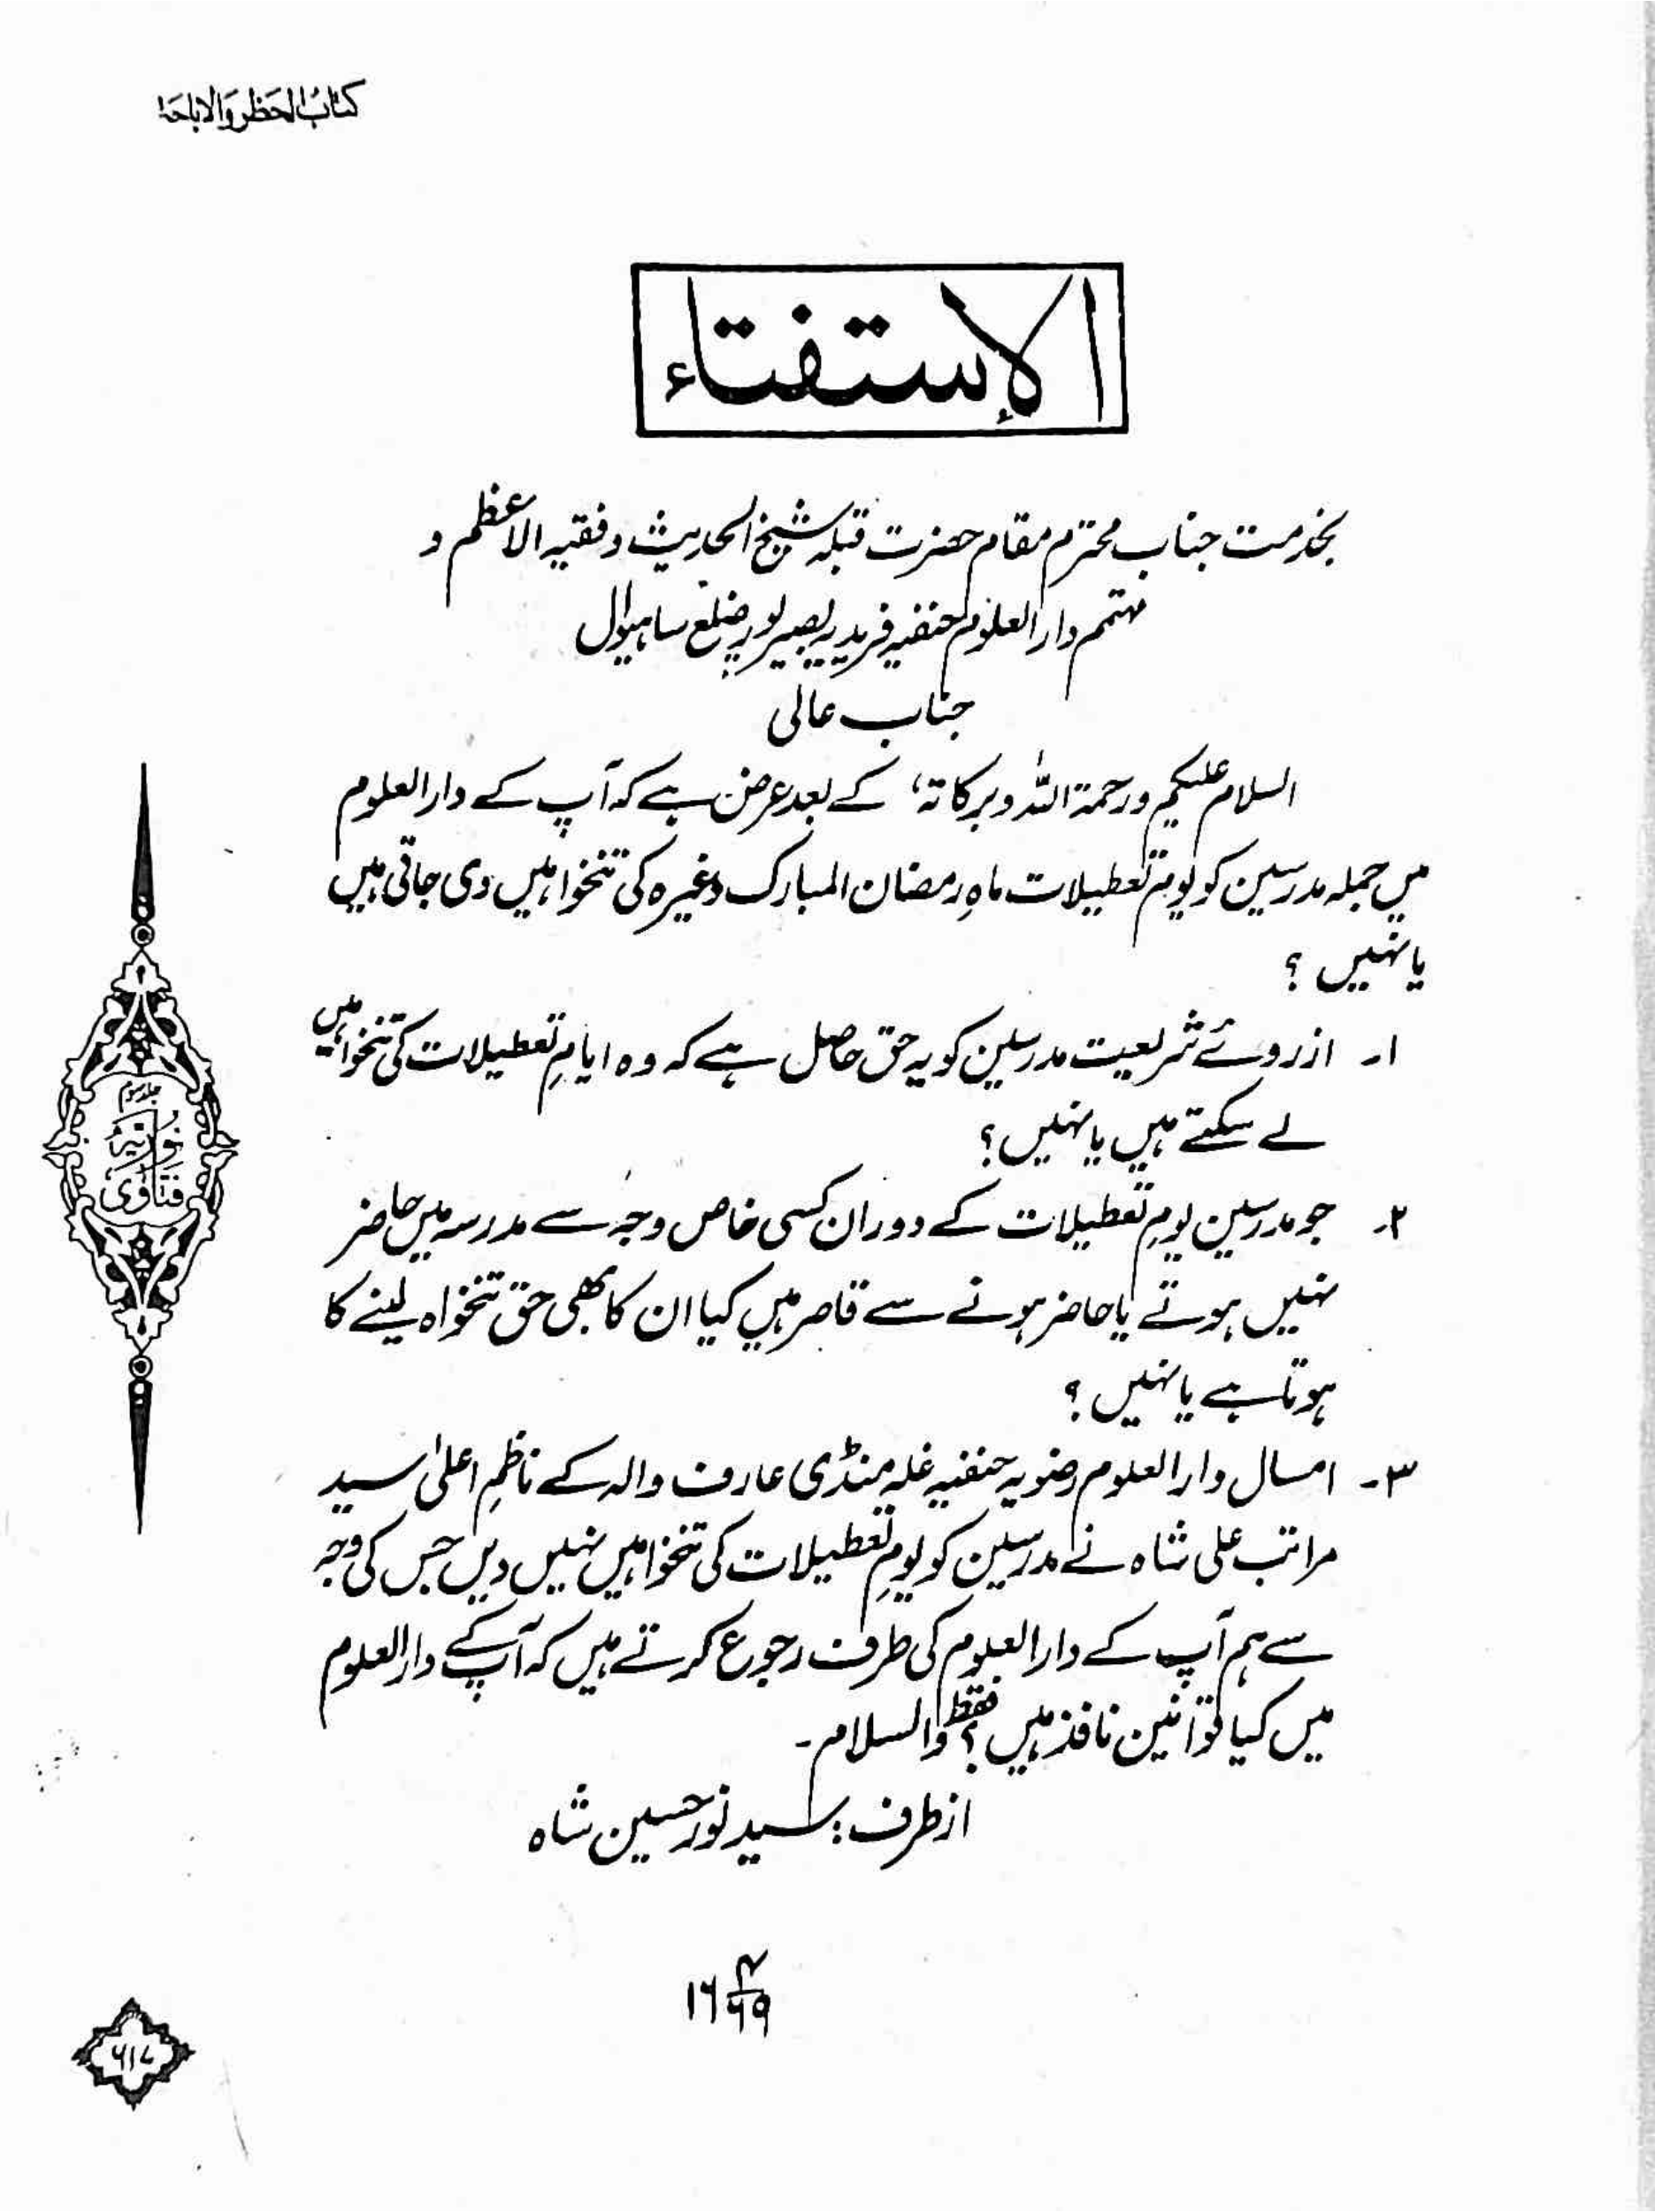 کتابُ الحَظر وَالاباحَة
الإستفتاء
بخدمت جناب محترم مقام حضرت قبلہ شیخ الحدیث و فقیہ الاعظم و
مہتمم دارالعلوم حنفیہ فریدیہ بصیرپور ضلع ساہیوال
جناب عالی
السلام علیکم ورحمۃ اللہ وبرکاتہ، کے بعد عرض ہے کہ آپ کے دارالعلوم
میں جملہ مدرسین کو یومِ تعطیلات ماہِ رمضان المبارک وغیرہ کی تنخواہیں دی جاتی ہیں
یا نہیں ؟
۱۔ ازروئے شریعت مدرسین کو یہ حق حاصل ہے کہ وہ ایامِ تعطیلات کی تنخواہیں
لے سکتے ہیں یا نہیں ؟
۲۔ جو مدرسین یومِ تعطیلات کے دوران کسی خاص وجہ سے مدرسہ میں حاضر
نہیں ہوتے یا حاضر ہونے سے قاصر ہیں کیا ان کا بھی حق تنخواہ لینے کا
ہوتا ہے یا نہیں ؟
۳۔ امسال دارالعلوم رضویہ حنفیہ غلہ منڈی عارف والہ کے ناظمِ اعلیٰ سید
مراتب علی شاہ نے مدرسین کو یومِ تعطیلات کی تنخواہیں نہیں دیں جس کی وجہ
سے ہم آپ کے دارالعلوم کی طرف رجوع کرتے ہیں کہ آپ کے دارالعلوم
میں کیا قوانین نافذ ہیں ؟ فقط والسلام ۔
از طرف : سید نور حسین شاہ
۱۶ ۴/۶۹
جلد سوم
نُورِیَہ
فتَاوٰی
۶۱۷